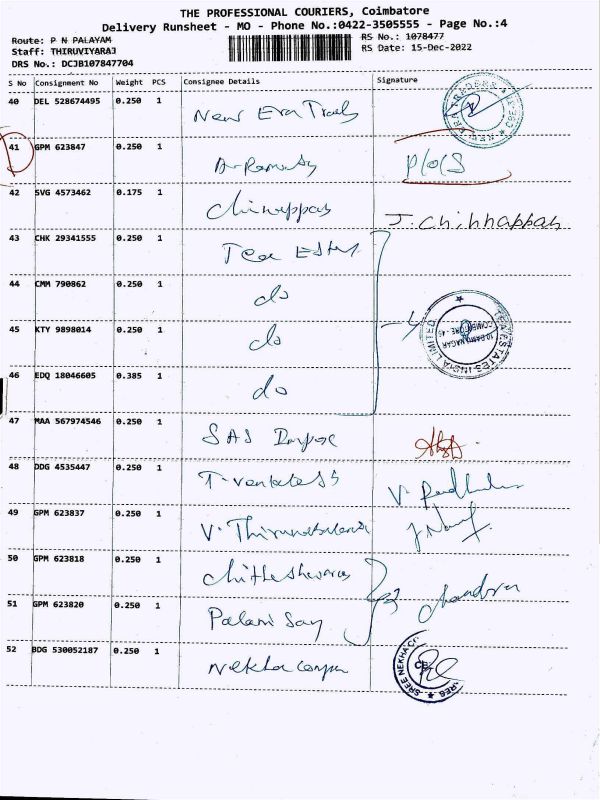 THE PROFESSIONAL COURIERS, Coimbatore
Delivery Runsheet - MO - Phone No.:0422-3505555 - Page No.:4
Route: P N PALAYAM
RS No.: 1078477
Staff: THIRUVIYARAJ
RS Date: 15-Dec-2022
DRS No.: DCJB107847704
S No Consignment No Weight PCS Consignee Details Signature
40 DEL 528674495 0.250 1 New Era
41 GPM 623847 0.250 1
42 SVG 4573462 0.175 1 Chinappah J. Chihhappah
43 CHK 29341555 0.250 1 Tea
44 CMM 790862 0.250 1 do
45 KTY 9898014 0.250 1 do
TEA ESTATES INDIA LIMITED
46 EDQ 18046605 0.385 1 do
47 MAA 567974546 0.250 1 SAS
48 DDG 4535447 0.250 1 V.
49 GPM 623837 0.250 1 V.
50 GPM 623818 0.250 1
51 GPM 623820 0.250 1 Palani Chandra
52 BDG 530052187 0.250 1 Nekha
SREE NEKHA